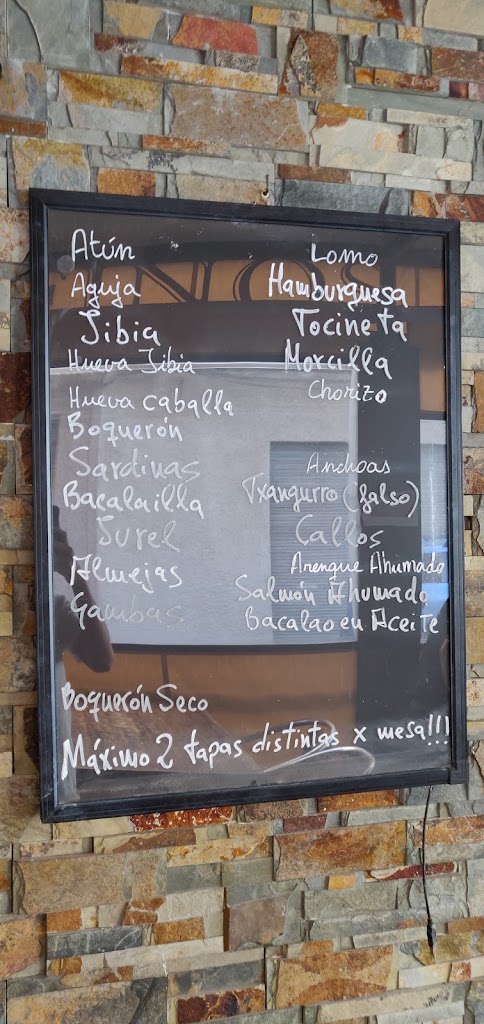 Atún
Aguja
Jibia
Hueva Jibia
Hueva caballa
Boquerón
Sardinas
Bacalailla
Jurel
Almejas
Gambas
Boquerón Seco
Lomo
Hamburguesa
Tocineta
Morcilla
Chorizo
Anchoas
Txangurro (falso)
Callos
Arenque Ahumado
Salmón Ahumado
Bacalao en Aceite
Máximo 2 tapas distintas x mesa!!!